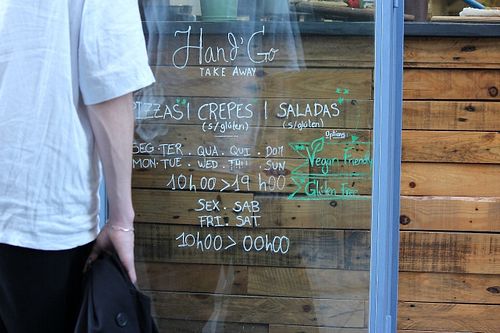 Hand'Go
TAKE AWAY
PIZZAS | CREPES | SALADAS
(s/glúten) (s/glúten)
Options:
SEG. TER. QUA. QUI. DOM
MON. TUE. WED. THU. SUN
Vegan Friendly
10h00 > 19h00
Gluten Free
SEX. SAB
FRI. SAT
10h00 > 00h00